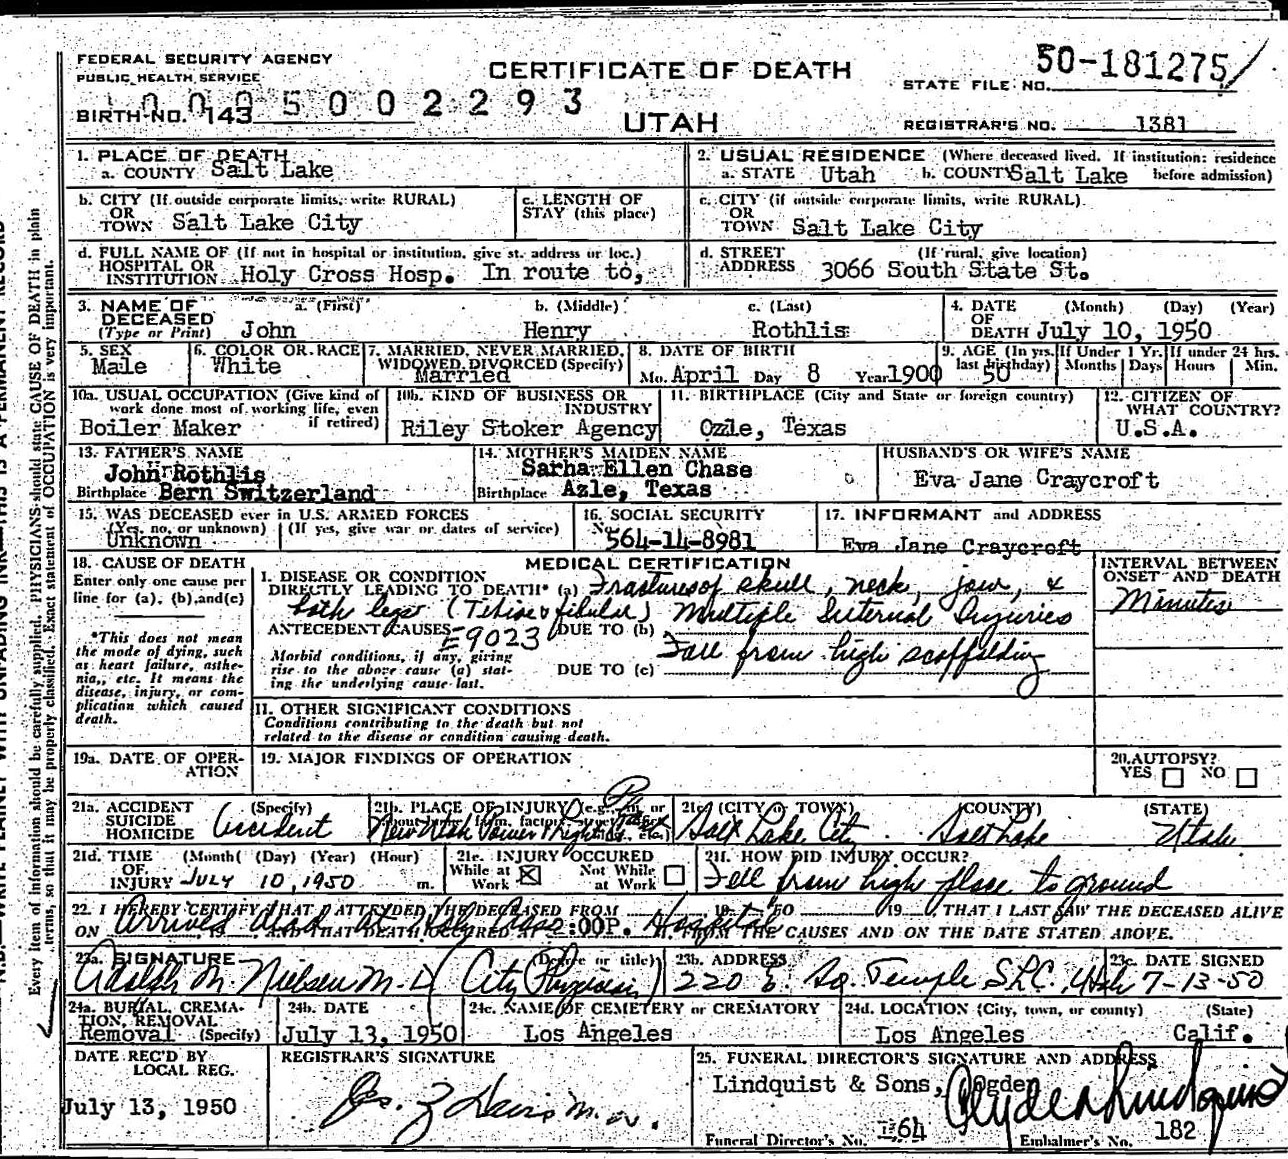 FEDERAL SECURITY AGENCY
PUBLIC HEALTH SERVICE
CERTIFICATE OF DEATH
STATE FILE NO. 50-181275
BIRTH NO. 143
0005002293
UTAH
REGISTRAR'S NO. 1381
1. PLACE OF DEATH
a. COUNTY Salt Lake
2. USUAL RESIDENCE (Where deceased lived. If institution: residence before admission)
a. STATE Utah b. COUNTY Salt Lake
b. CITY (If outside corporate limits, write RURAL)
OR
TOWN Salt Lake City
c. LENGTH OF
STAY (this place)
c. CITY (if outside corporate limits, write RURAL)
OR
TOWN Salt Lake City
d. FULL NAME OF (If not in hospital or institution, give st. address or loc.)
HOSPITAL OR
INSTITUTION Holy Cross Hosp. In route to,
d. STREET (If rural, give location)
ADDRESS 3066 South State St.
3. NAME OF DECEASED (Type or Print)
a. (First) b. (Middle) c. (Last)
John Henry Rothlis
4. DATE OF DEATH (Month) (Day) (Year)
July 10, 1950
5. SEX
Male
6. COLOR OR RACE
White
7. MARRIED, NEVER MARRIED,
WIDOWED, DIVORCED (Specify)
Married
8. DATE OF BIRTH
Mo. April Day 8 Year 1900
9. AGE (In yrs. last birthday)
50
If Under 1 Yr.
Months Days
If under 24 hrs.
Hours Min.
10a. USUAL OCCUPATION (Give kind of
work done most of working life, even
if retired)
Boiler Maker
10b. KIND OF BUSINESS OR
INDUSTRY
Riley Stoker Agency
11. BIRTHPLACE (City and State or foreign country)
Ozle, Texas
12. CITIZEN OF
WHAT COUNTRY?
U.S.A.
13. FATHER'S NAME
John Rothlis
Birthplace Bern Switzerland
14. MOTHER'S MAIDEN NAME
Sarha Ellen Chase
Birthplace Azle, Texas
HUSBAND'S OR WIFE'S NAME
Eva Jane Craycroft
15. WAS DECEASED ever in U.S. ARMED FORCES
(Yes, no, or unknown) (If yes, give war or dates of service)
Unknown
16. SOCIAL SECURITY
No. 564-14-8981
17. INFORMANT and ADDRESS
Eva Jane Craycroft
18. CAUSE OF DEATH
Enter only one cause per
line for (a), (b), and (c)
*This does not mean
the mode of dying, such
as heart failure, asthe-
nia, etc. It means the
disease, injury, or com-
plication which caused
death.
MEDICAL CERTIFICATION
I. DISEASE OR CONDITION
DIRECTLY LEADING TO DEATH* (a) Fractures of skull, neck, jaw, &
both legs (Tibiae & fibulae) Multiple Internal Injuries
ANTECEDENT CAUSES E9023 DUE TO (b)
Morbid conditions, if any, giving
rise to the above cause (a) stat-
ing the underlying cause last.
DUE TO (c)
Fall from high scaffolding
INTERVAL BETWEEN
ONSET AND DEATH
Minutes
II. OTHER SIGNIFICANT CONDITIONS
Conditions contributing to the death but not
related to the disease or condition causing death.
19a. DATE OF OPER-
ATION
19. MAJOR FINDINGS OF OPERATION
20. AUTOPSY?
YES NO
21a. ACCIDENT (Specify)
SUICIDE
HOMICIDE Accident
21b. PLACE OF INJURY
New Utah Power & Light Plant
21c. (CITY or TOWN) (COUNTY) (STATE)
Salt Lake City Salt Lake Utah
21d. TIME (Month) (Day) (Year) (Hour)
OF
INJURY JULY 10, 1950 m.
21e. INJURY OCCURED
While at Work ☒ Not While at Work ☐
21f. HOW DID INJURY OCCUR?
Fell from high place to ground
22. I HEREBY CERTIFY THAT I ATTENDED THE DECEASED FROM 19 TO 19, THAT I LAST SAW THE DECEASED ALIVE
ON AND THAT DEATH OCCURED AT :00P. M. FROM THE CAUSES AND ON THE DATE STATED ABOVE.
Arrived dead at Holy Cross Hospital
23a. SIGNATURE (Degree or title)
Adolph M. Nielsen M.D. (City Physician)
23b. ADDRESS
220 E. So. Temple SLC, Utah
23c. DATE SIGNED
7-13-50
24a. BURIAL, CREMA-
TION, REMOVAL
Removal (Specify)
24b. DATE
July 13, 1950
24c. NAME OF CEMETERY or CREMATORY
Los Angeles
24d. LOCATION (City, town, or county) (State)
Los Angeles Calif.
DATE REC'D BY
LOCAL REG.
July 13, 1950
REGISTRAR'S SIGNATURE
25. FUNERAL DIRECTOR'S SIGNATURE AND ADDRESS
Lindquist & Sons, Ogden
Clyde Lindquist
Funeral Director's No. 164
Embalmer's No. 182
Every item of information should be carefully supplied. PHYSICIANS should state CAUSE OF DEATH in plain
terms, so that it may be properly classified. Exact statement of OCCUPATION is very important.